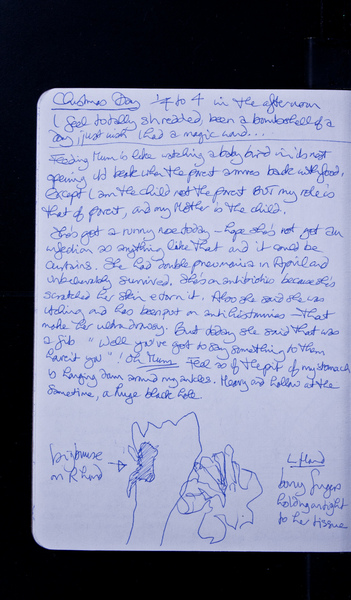 Christmas Day ¼ to 4 in the afternoon
I feel totally shredded, been a bombshell of a
day, just wish I had a magic wand...
Feeding Mum is like watching a baby bird in its nest
opening its beak when the parent arrives back with food,
except I am the child not the parent BUT my role is
that of parent, and my Mother is the child.
She's got a runny nose today – hope she's not got an
infection or anything like that and it could be
curtains. She had double pneumonia in April and
unbelievably survived. She's on antibiotics because she's
scratched her skin & torn it. Also she said she was
itching and has been put on antihistamines – that
make her ultra drowsy. But today she said that was
a fib "Well you've got to say something to them
haven't you"! Oh Mum. Feel as if the pit of my stomach
is hanging down around my ankles. Heavy and hollow at the
same time, a huge black hole
big bruise
on R hand
L hand
bony fingers
holding on tight
to her tissue